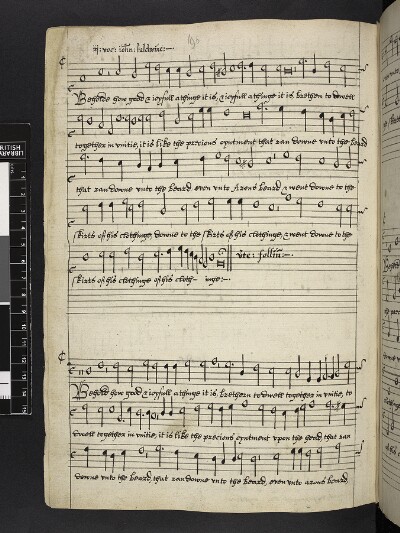 iij: voc: iohn: baldwine:—
Beholde how good & ioyfull a thinge it is, & ioyfull a thinge it is, brethren to dwell
together in vnitie, it is like the precious oyntment that ran downe vnto the beard
that ran downe vnto the beard. even vnto Arons beard & went downe to the
skirts of his clothinge, downe to the skirts of his clothinge, & went downe to the
skirts of his clothinge of his cloth- inge:—
vte: follw:—
Beholde how good & ioyfull a thinge it is, brethern to dwell together in vnitie, to
dwell together in vnitie, it is like the precious oyntment vpon the head, that ran
downe vnto the beard, that ran downe vnto the beard, even vnto arons beard,
BRITISH
LIBRARY